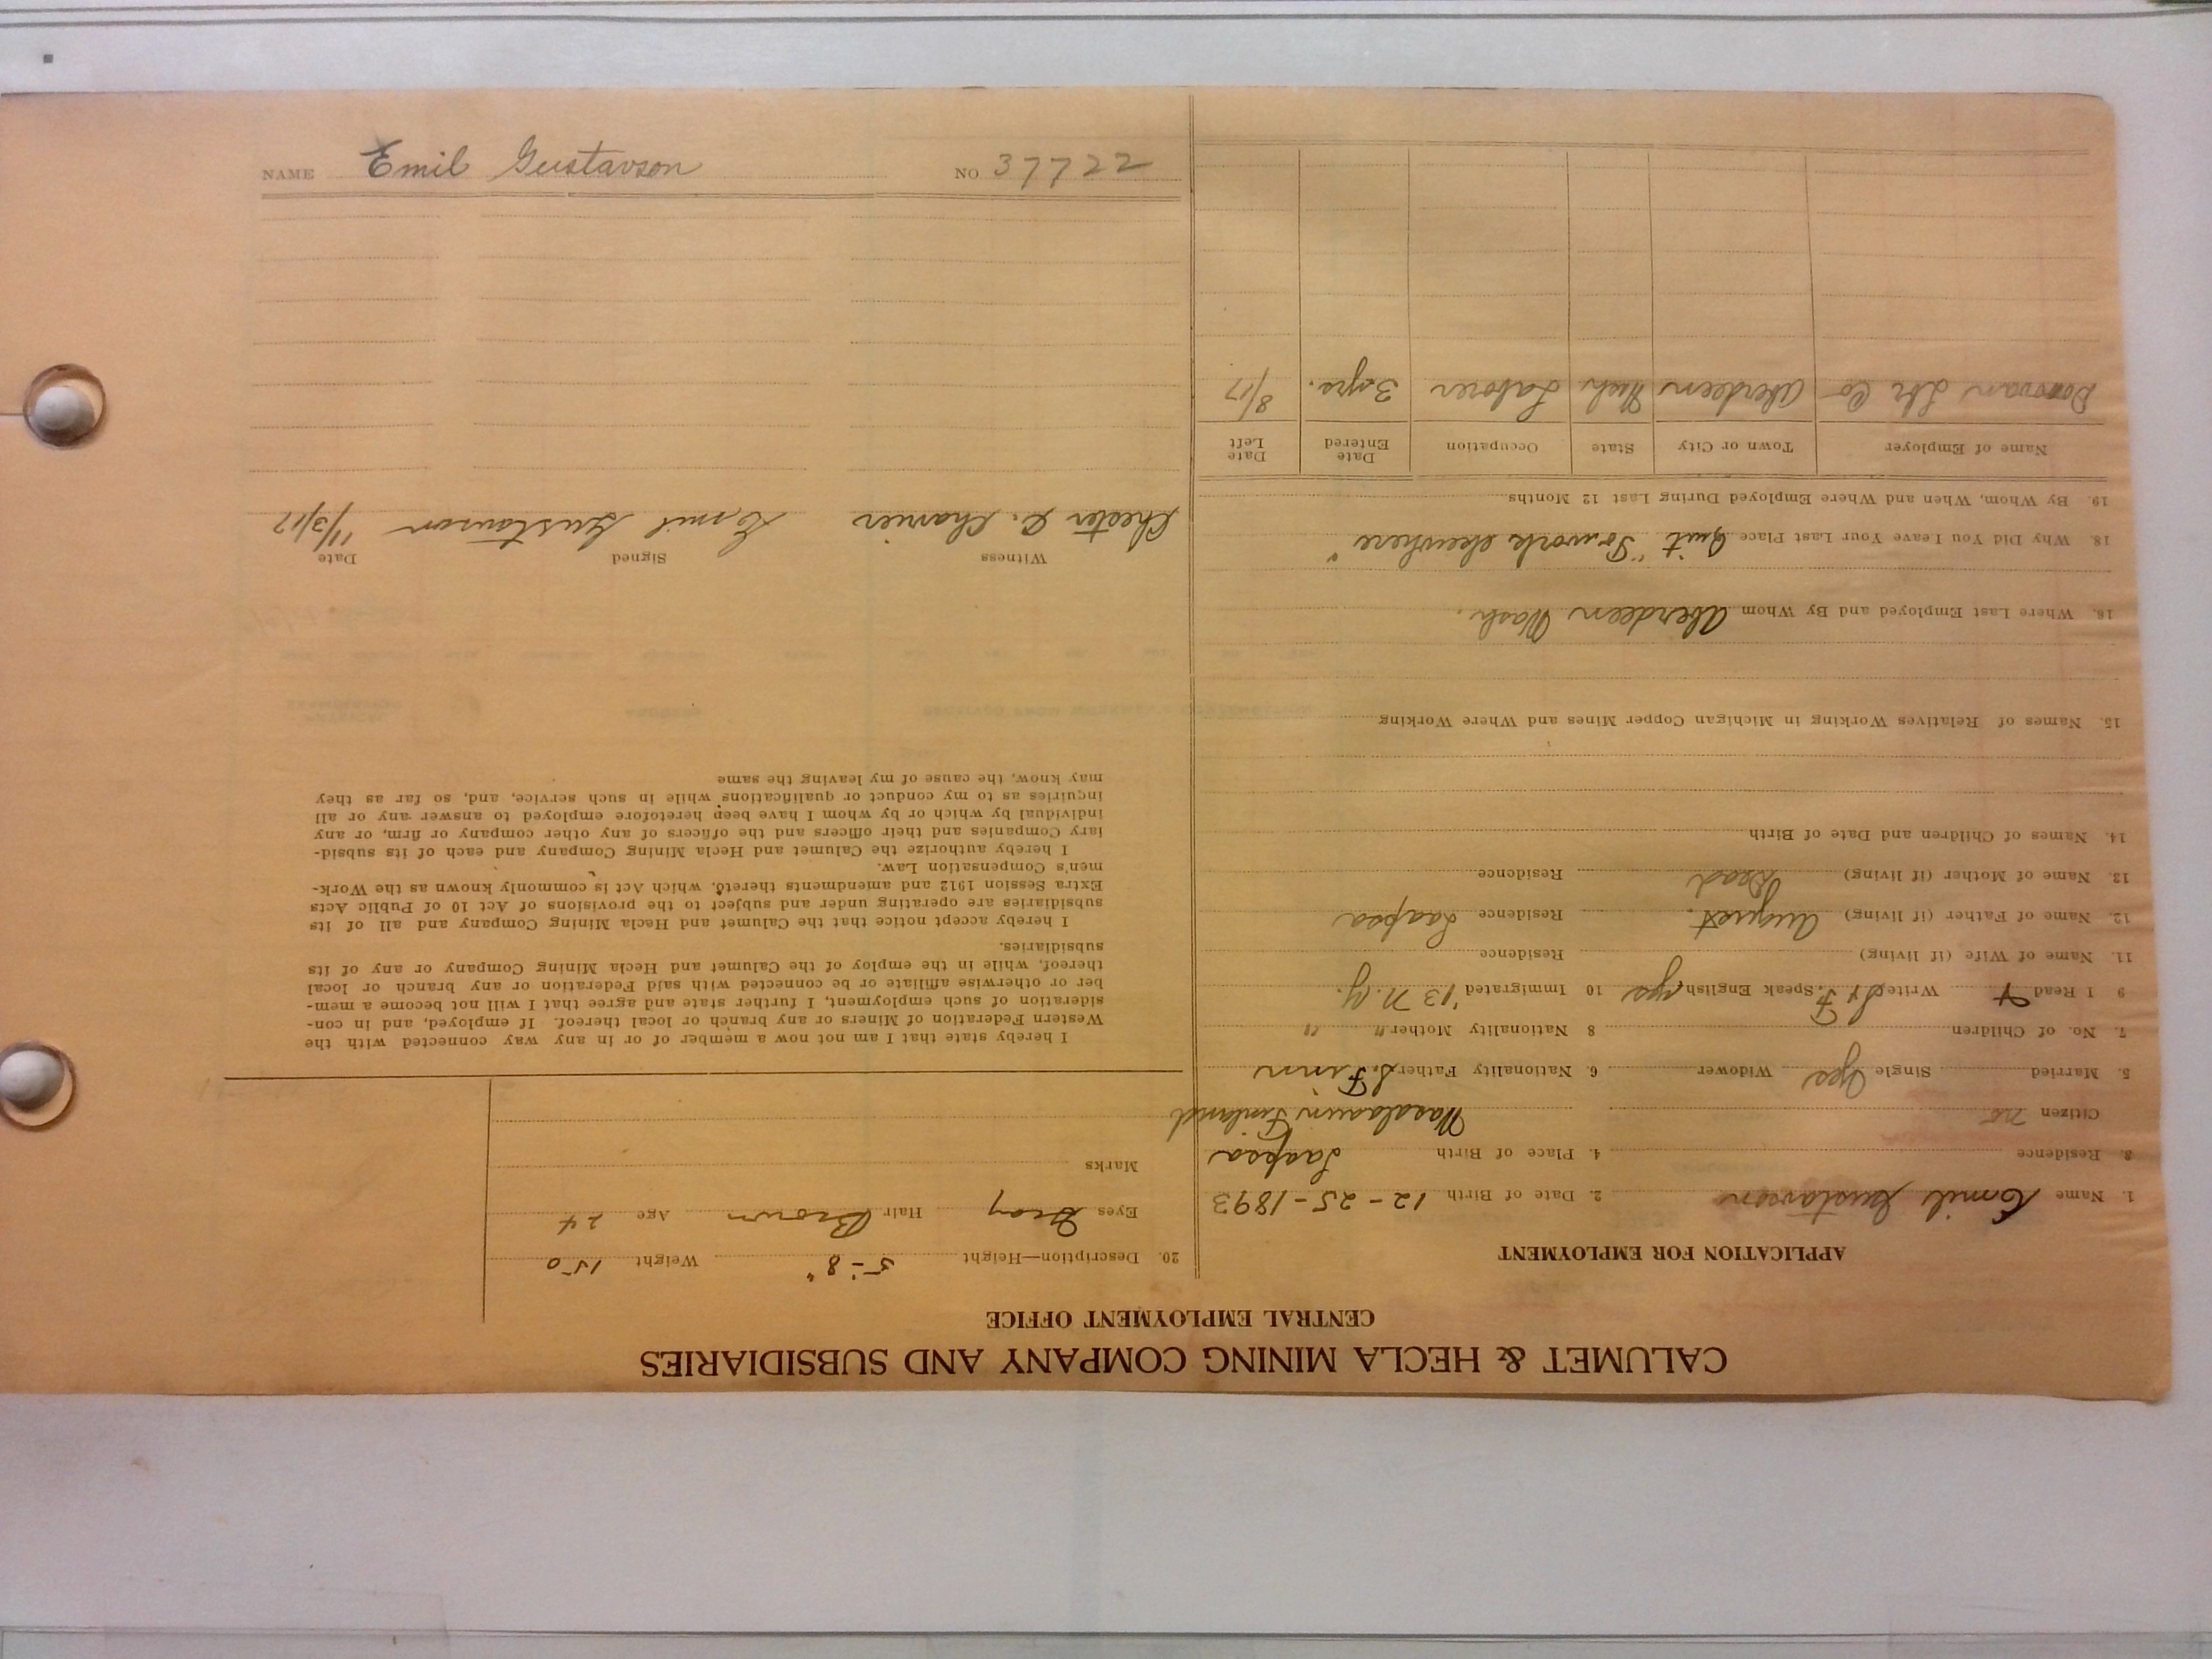 CALUMET & HECLA MINING COMPANY AND SUBSIDIARIES
CENTRAL EMPLOYMENT OFFICE
APPLICATION FOR EMPLOYMENT
1. Name Emil Gustavson 2. Date of Birth 12-25-1893
3. Residence 4. Place of Birth Laapsa
Citizen no Wasalaani Finland
5. Married Single Yes Widower 6. Nationality Father S. Finn
7. No. of Children 8 Nationality Mother " "
9 I Read Write S & F. Speak English yes 10 Immigrated '13 N.Y.
11. Name of Wife (if living) Residence
12. Name of Father (if living) August. Residence Laapsa
13. Name of Mother (if living) Dead Residence
14. Names of Children and Date of Birth
15. Names of Relatives Working in Michigan Copper Mines and Where Working
16. Where Last Employed and By Whom Aberdeen Wash.
18. Why Did You Leave Your Last Place Quit "To work elsewhere"
19. By Whom, When and Where Employed During Last 12 Months
Name of Employer Town or City State Occupation Date Entered Date Left
Donovan Lbr Co Aberdeen Wash Laborer 3 yrs. 8/17
20. Description—Height 5'-8" Weight 150
Eyes Gray Hair Brown Age 24
Marks
I hereby state that I am not now a member of or in any way connected with the
Western Federation of Miners or any branch or local thereof. If employed, and in con-
sideration of such employment, I further state and agree that I will not become a mem-
ber or otherwise affiliate or be connected with said Federation or any branch or local
thereof, while in the employ of the Calumet and Hecla Mining Company or any of its
subsidiaries.
I hereby accept notice that the Calumet and Hecla Mining Company and all of its
subsidiaries are operating under and subject to the provisions of Act 10 of Public Acts
Extra Session 1912 and amendments thereto, which Act is commonly known as the Work-
men's Compensation Law.
I hereby authorize the Calumet and Hecla Mining Company and each of its subsid-
iary Companies and their officers and the officers of any other company or firm, or any
individual by which or by whom I have been heretofore employed to answer any or all
inquiries as to my conduct or qualifications while in such service, and, so far as they
may know, the cause of my leaving the same
Witness Signed Date
Chester C. Charrier Emil Gustavson 11/3/17
NAME Emil Gustavson NO 37722